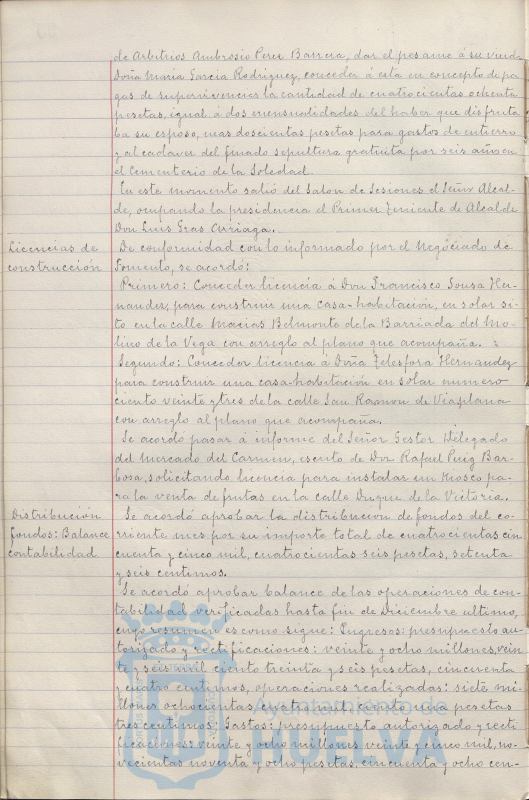 de Arbitrios Ambrosio Perez Barrera, dar el pesame á su viuda
Doña Maria Garcia Rodriguez, conceder á esta en concepto de pa-
gas de supervivencia la cantidad de cuatrocientas ochenta
pesetas, igual á dos mensualidades del haber que disfruta-
ba su esposo, mas doscientas pesetas para gastos de entierro
y al cadaver del finado sepultura gratuita por seis años en
el Cementerio de la Soledad.
En este momento salió del Salon de Sesiones el Señor Alcal-
de, ocupando la presidencia el Primer Teniente de Alcalde
Don Luis Gras
Licencias de
construcción
De conformidad con lo informado por el Negociado de
Fomento, se acordó:
Primero: Conceder licencia á Don Francisco Sousa Her-
nandez, para construir una casa-habitación, en solar si-
to en la calle Macias Belmonte de la Barriada del Mo-
lino de la Vega con arreglo al plano que acompaña.
Segundo: Conceder licencia á Doña Telesfora Hernandez
para construir una casa-habitación en solar numero
ciento veinte y tres de la calle San Ramon de Viaplana
con arreglo al plano que acompaña.
Se acordó pasar á informe del Señor Gestor Delegado
del Mercado del Carmen, escrito de Don Rafael Puig Bar-
bosa, solicitando licencia para instalar un Kiosco pa-
ra la venta de frutas en la calle Duque de la Victoria.
Distribución
fondos: Balance
contabilidad
Se acordó aprobar la distribución de fondos del co-
rriente mes por su importe total de cuatrocientas cin
cuenta y cinco mil, cuatrocientas seis pesetas, setenta
y seis centimos.
Se acordó aprobar balance de las operaciones de con-
tabilidad verificadas hasta fin de Diciembre ultimo,
cuyo resumen es como sigue: Ingresos: presupuesto au-
torizado y rectificaciones: veinte y ocho millones, vein
te y seis mil ciento treinta y seis pesetas, cincuenta
y cuatro centimos, operaciones realizadas: siete mi-
llones ochocientas, cuatro mil, ciento una pesetas
tres centimos: Gastos: presupuesto autorizado y recti
ficaciones: veinte y ocho millones veinte y cinco mil, no-
vecientas noventa y ocho pesetas, cincuenta y ocho cen-
Ayuntamiento de
HUELVA